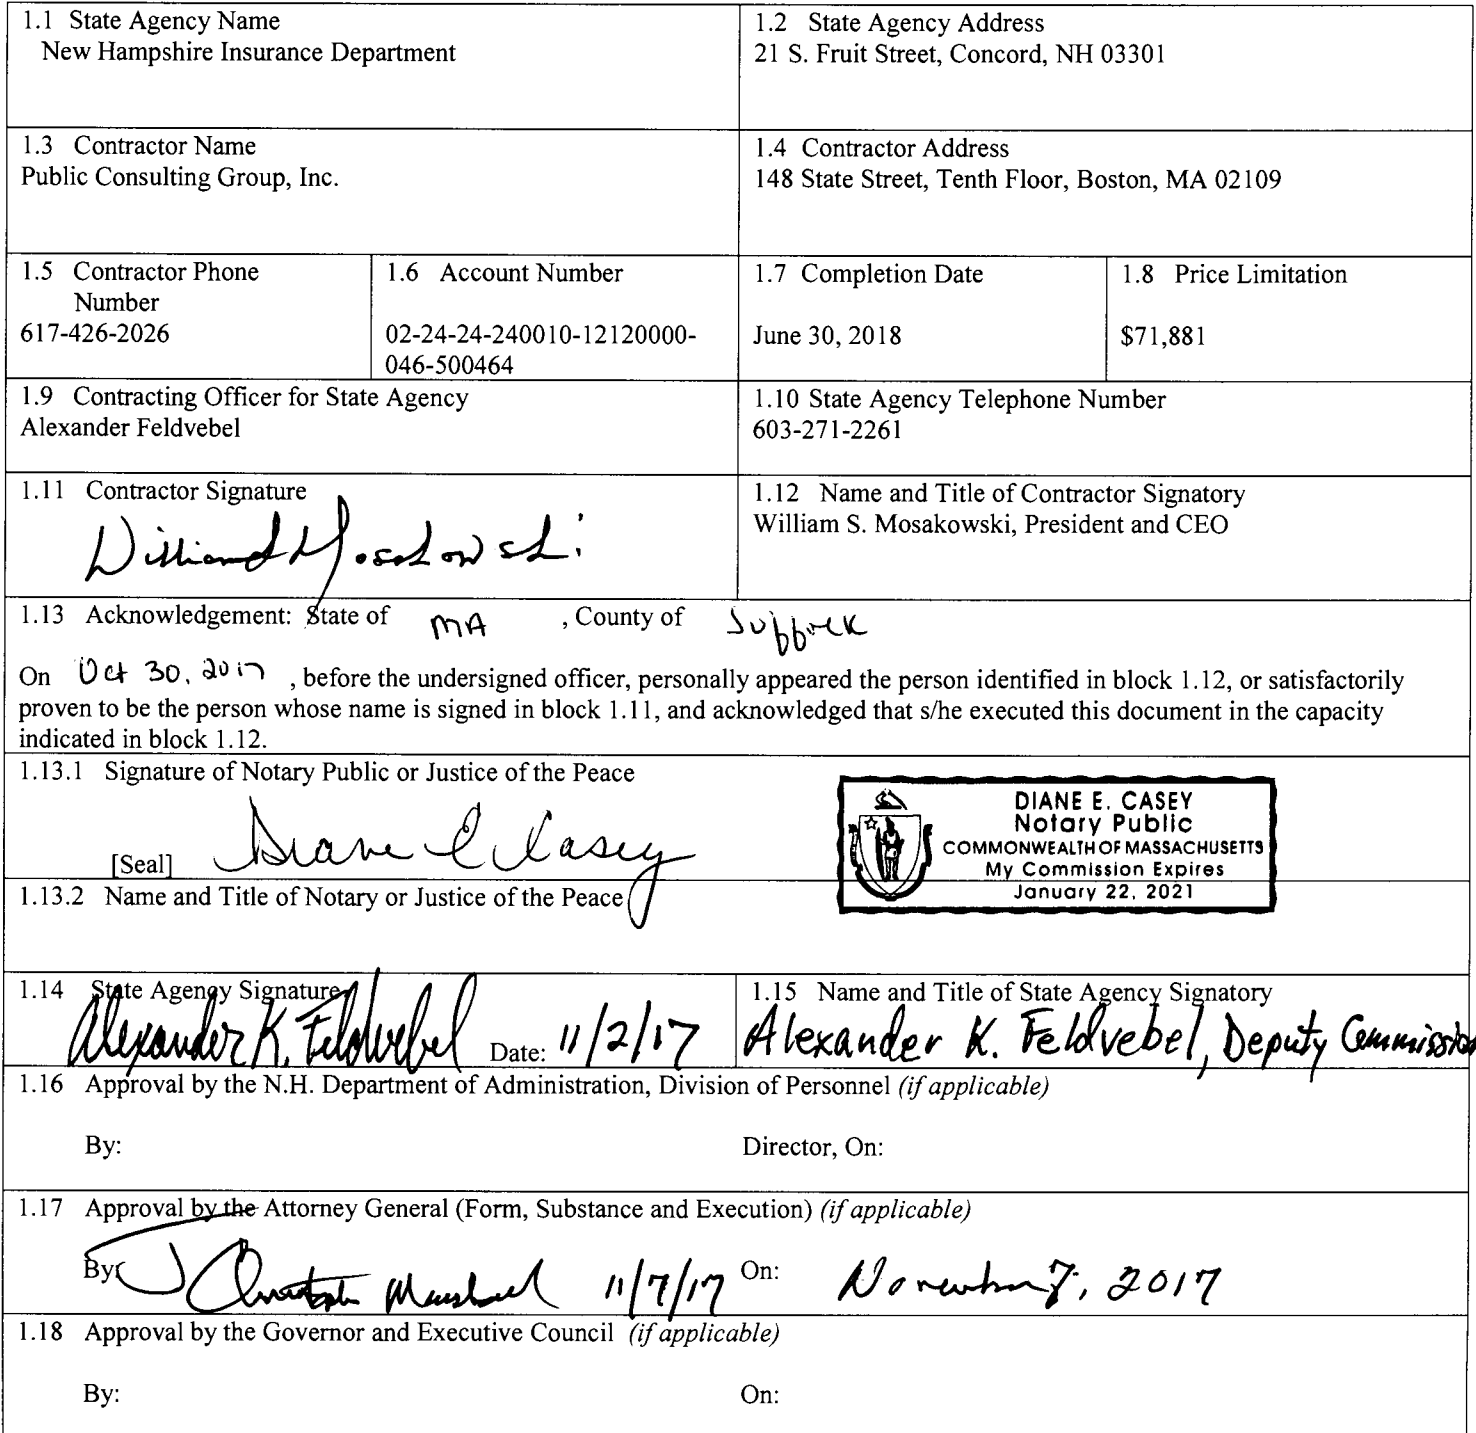 1.1 State Agency Name
New Hampshire Insurance Department
1.2 State Agency Address
21 S. Fruit Street, Concord, NH 03301
1.3 Contractor Name
Public Consulting Group, Inc.
1.4 Contractor Address
148 State Street, Tenth Floor, Boston, MA 02109
1.5 Contractor Phone
Number
617-426-2026
1.6 Account Number
02-24-24-240010-12120000-
046-500464
1.7 Completion Date
June 30, 2018
1.8 Price Limitation
$71,881
1.9 Contracting Officer for State Agency
Alexander Feldvebel
1.10 State Agency Telephone Number
603-271-2261
1.11 Contractor Signature
William S Mosakowski
1.12 Name and Title of Contractor Signatory
William S. Mosakowski, President and CEO
1.13 Acknowledgement: State of MA , County of Suffolk
On Oct 30, 2017 , before the undersigned officer, personally appeared the person identified in block 1.12, or satisfactorily
proven to be the person whose name is signed in block 1.11, and acknowledged that s/he executed this document in the capacity
indicated in block 1.12.
1.13.1 Signature of Notary Public or Justice of the Peace
[Seal] Diane E Casey
DIANE E. CASEY
Notary Public
COMMONWEALTH OF MASSACHUSETTS
My Commission Expires
January 22, 2021
1.13.2 Name and Title of Notary or Justice of the Peace
1.14 State Agency Signature
Alexander K. Feldvebel Date: 11/2/17
1.15 Name and Title of State Agency Signatory
Alexander K. Feldvebel, Deputy Commission
1.16 Approval by the N.H. Department of Administration, Division of Personnel (if applicable)
By: Director, On:
1.17 Approval by the Attorney General (Form, Substance and Execution) (if applicable)
By: J Christopher Marshall 11/7/17 On: November 7, 2017
1.18 Approval by the Governor and Executive Council (if applicable)
By: On: